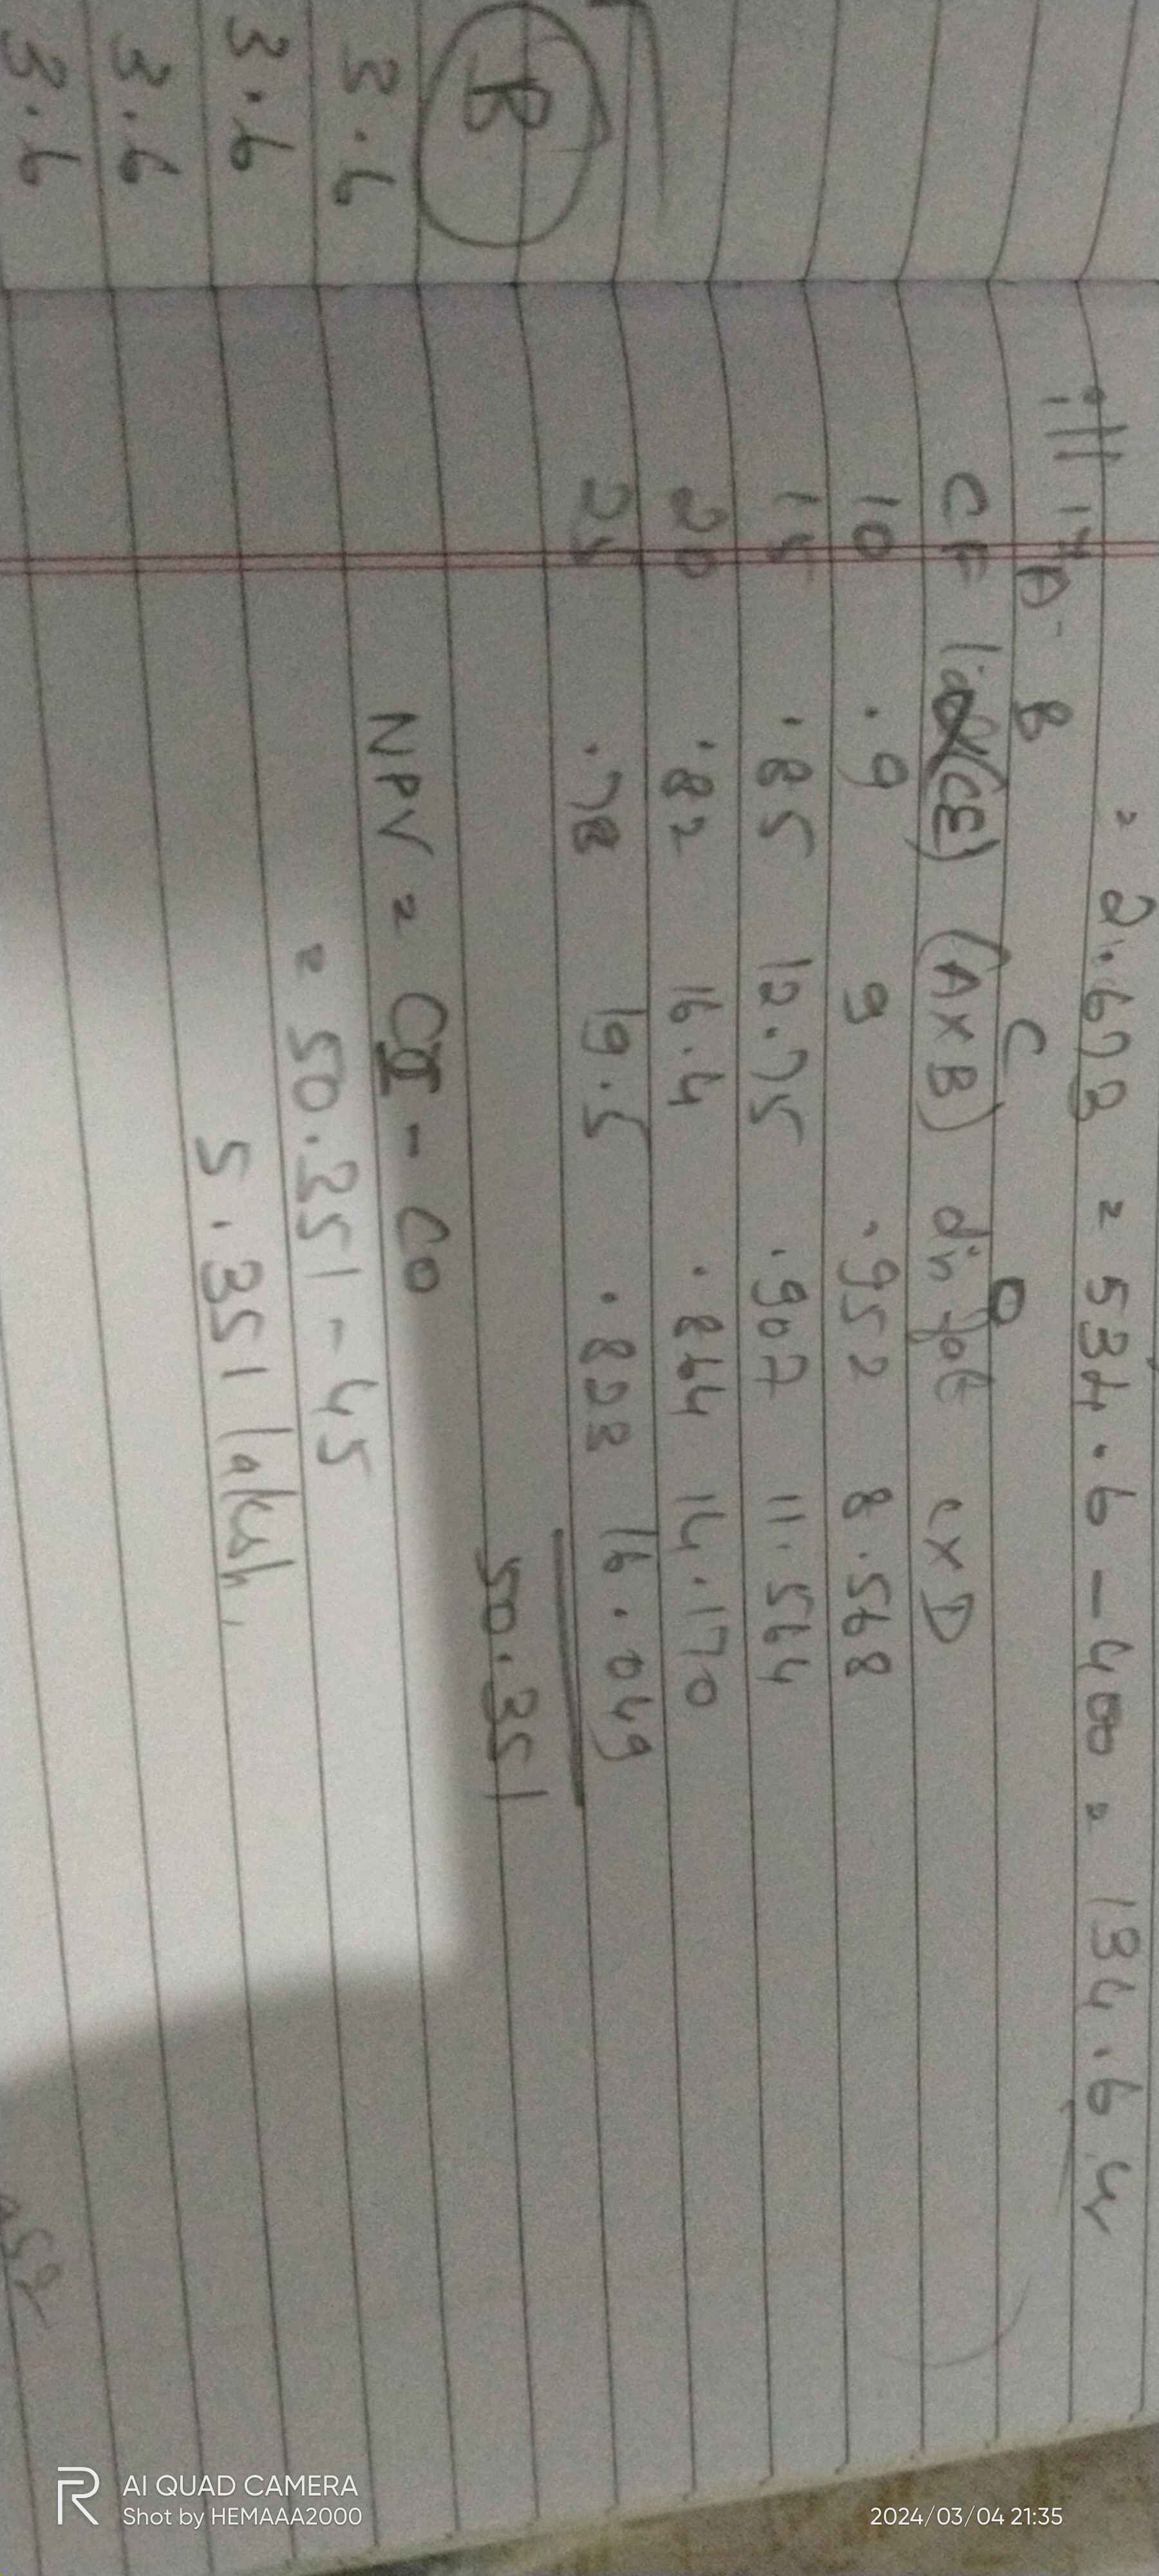 = 21.673 = 534.6 - 400 = 134.6 u
ill 14 A- B C D
CF (CE) (A×B) dis fat C×D
10 .9 9 .952 8.568
15 .85 12.75 .907 11.564
20 .82 16.4 .864 14.170
25 .78 19.5 .823 16.049
50.351
NPV = CI - CO
= 50.351 - 45
5.351 laksh,
B
3.6
3.6
3.6
3.6
AI QUAD CAMERA
Shot by HEMAAA2000
2024/03/04 21:35